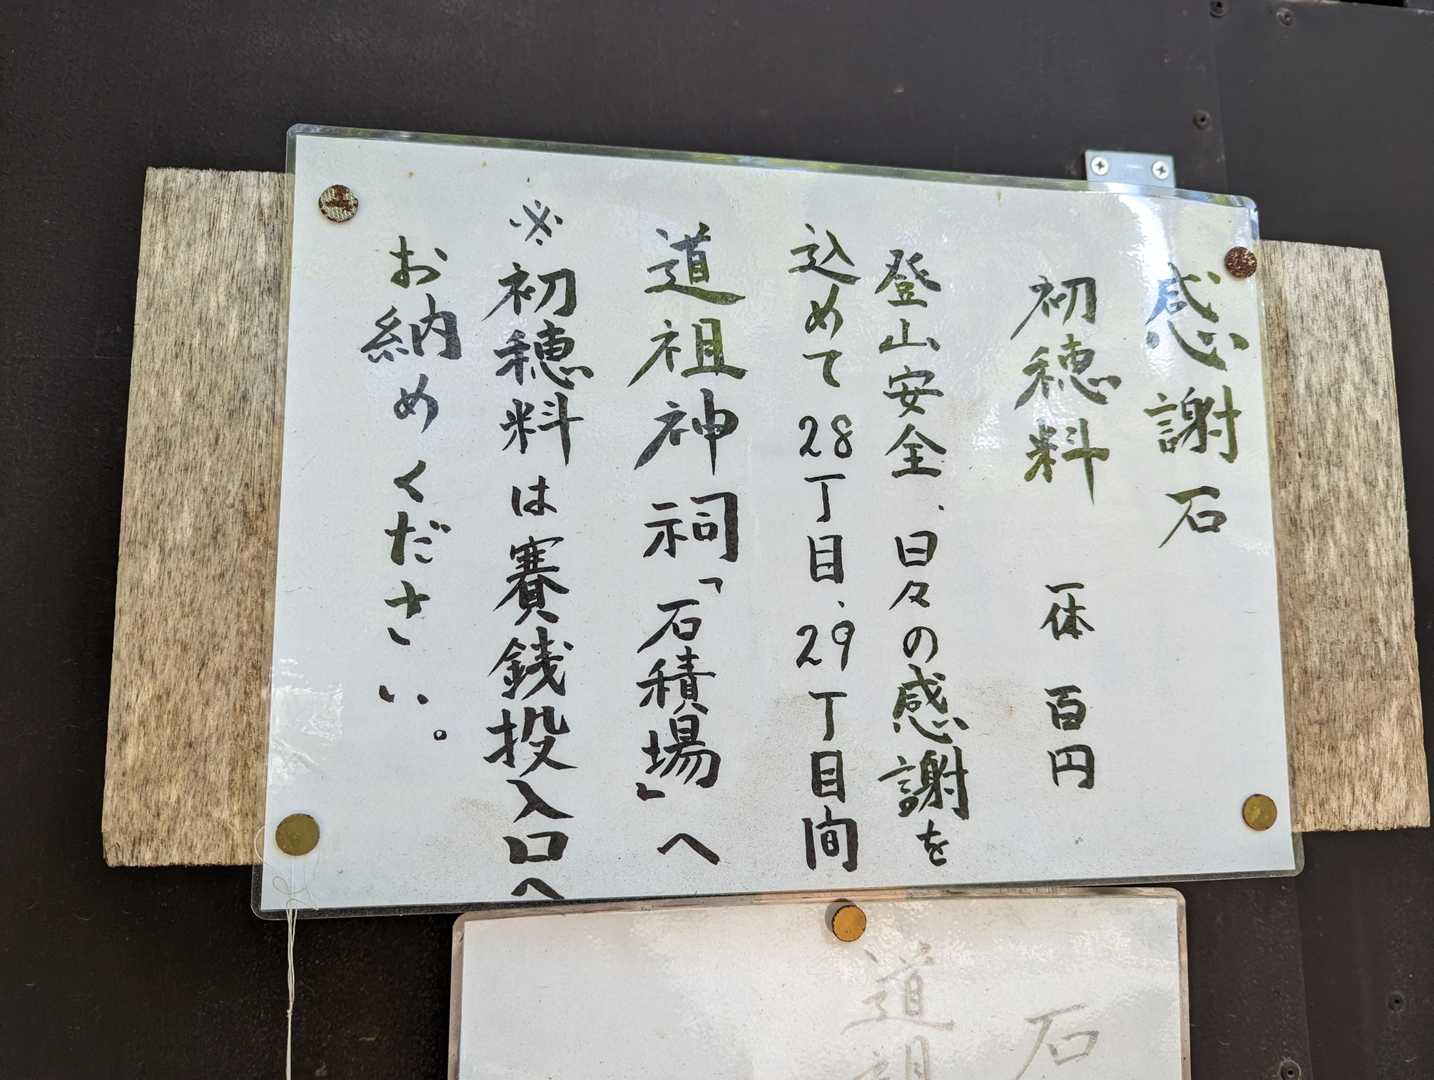 感謝石
初穂料 一体 百円
登山安全、日々の感謝を
込めて28丁目、29丁目間
道祖神祠「石積場」へ
※初穂料は賽銭投入口へ
お納めください。
石
道祖